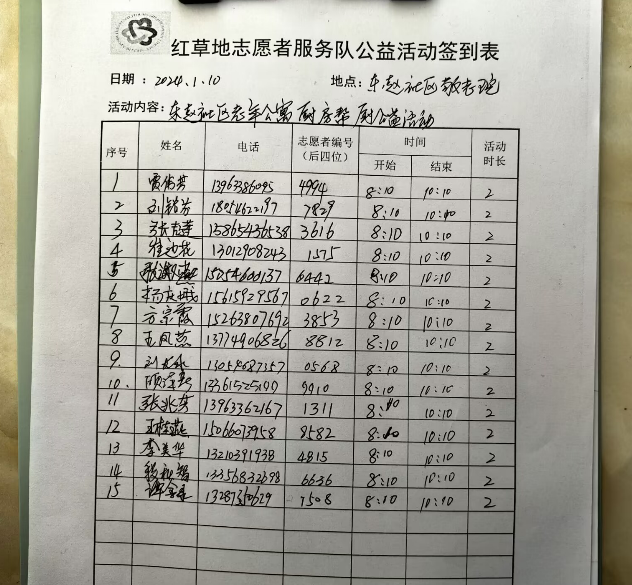 红草地志愿者服务队公益活动签到表
日期：2024.1.10 地点：东赵社区敬老院
活动内容：东赵社区老年公寓厨房帮厨公益活动
序号 姓名 电话 志愿者编号（后四位） 时间 活动时长
开始 结束
1 贾伟芳 13963386095 4994 8:10 10:10 2
2 18054622197 7829 8:10 10:10 2
3 15865436538 3616 8:10 10:10 2
4 13012908243 1575 8:10 10:10 2
5 15254600137 6442 8:10 10:10 2
6 15615929567 0622 8:10 10:10 2
7 方宗霞 15263807692 3853 8:10 10:10 2
8 王凤燕 13774906826 8812 8:10 10:10 2
9. 0568 8:10 10:10 2
10. 8:10 10:10 2
11 张兆芳 13963362167 1311 8:10 10:10 2
12 王桂燕 15066073958 8582 8:10 10:10 2
13 李美华 13210391938 4815 8:10 10:10 2
14 13356832698 6636 8:10 10:10 2
15 1508 8:10 10:10 2